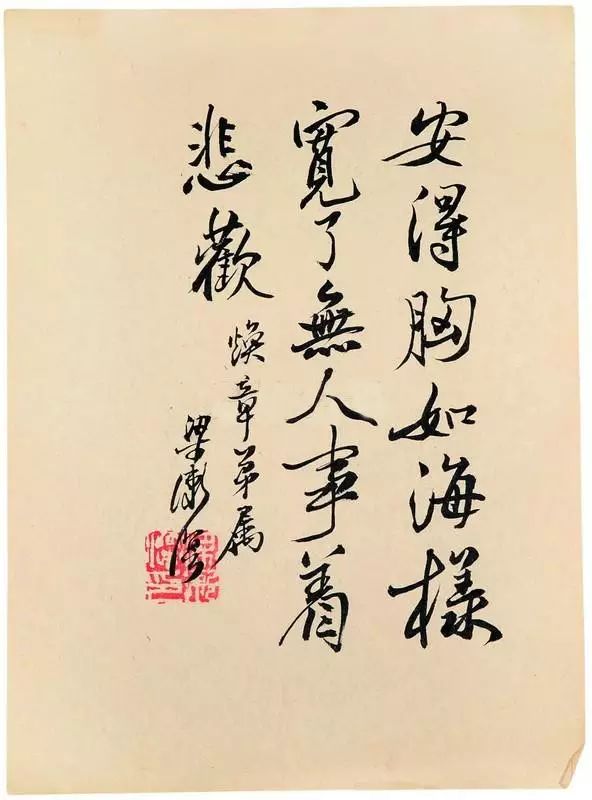 安得胸如海樣
寬了無人事着
悲歡
煥章弟属
梁漱溟